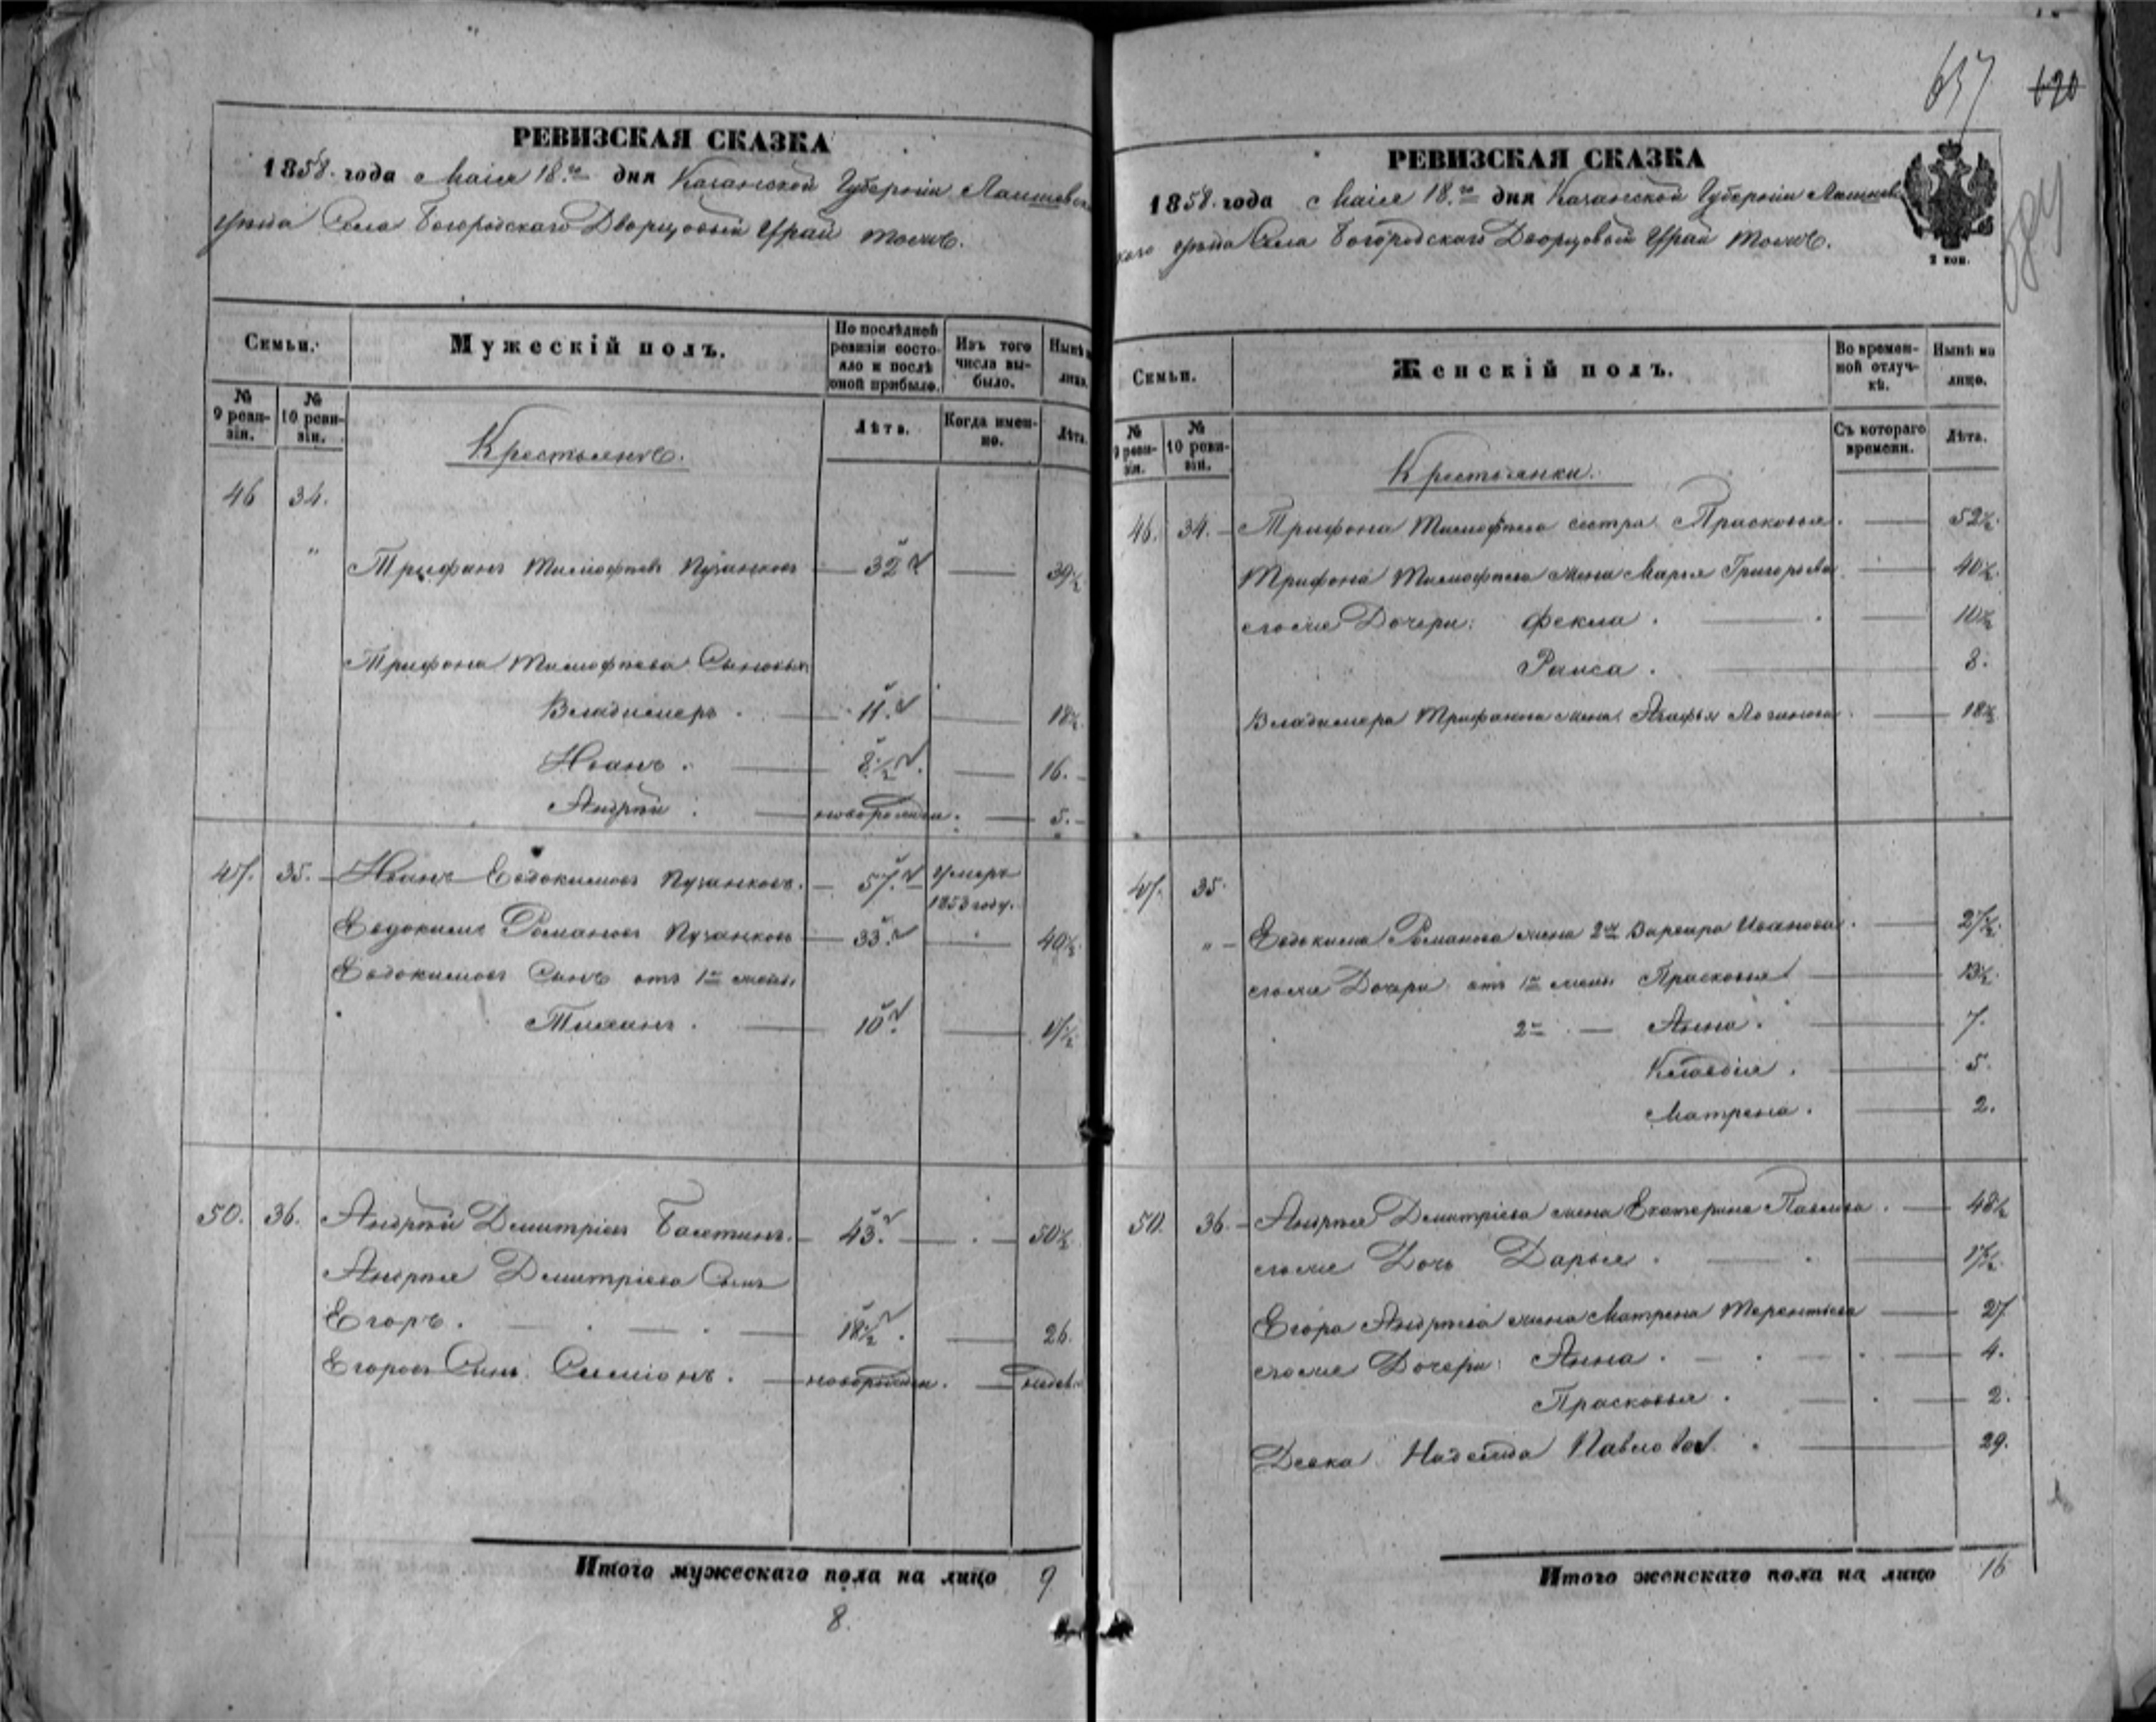 657 620
РЕВИЗСКАЯ СКАЗКА
1858. года Маія 18.го дня Казанской Губерніи Лаишевск
уѣзда Села Богородскаго Дворцовый Урай тожъ.
Семьи.
Мужескій полъ.
По послѣдней ревизіи состояло и послѣ оной прибыло.
Изъ того числа выбыло.
Нынѣ на лицо.
№ 9 ревизіи.
№ 10 ревизіи.
Лѣта.
Когда именно.
Лѣта.
Крестьянъ.
46 34.
" Трифанъ Тимофѣевъ Пузанковъ 32 39½
Трифона Тимофѣева Сыновья
Владимеръ. 11. 18½
Иванъ. 8½ 16.
Андрѣй. новорожден. 5.
47. 35. Иванъ Евдокимовъ Пузанковъ. 57. умеръ 1853 году.
Евдокимъ Романовъ Пузанковъ 33. 40½
Евдокимовъ Сынъ отъ 1й жены
Тиханъ. 10. 17½
50. 36. Андрѣй Демитріевъ 43. 50½
Андрѣя Демитріева Сынъ
Егоръ. 18½. 26.
Егоровъ Сынъ. Симіонъ. новорожден. недел.
Итого мужескаго пола на лицо 9
8.
РЕВИЗСКАЯ СКАЗКА
1858. года Маія 18.го дня Казанской Губерніи Лаишевс
каго уѣзда Села Богородскаго Дворцовый Урай тожъ.
2 коп.
Семьи.
Женскій полъ.
Во временной отлучкѣ.
Нынѣ на лицо.
№ 9 ревизіи.
№ 10 ревизіи.
Съ котораго времени.
Лѣта.
Крестьянки.
46. 34. Трифона Тимофѣева сестра Прасковья. 52½.
Трифона Тимофѣева жена Марья Григорьева 40½.
ихъ же Дочери: Фекла. 10½
Раиса. 8.
Владимера Трифанова жена Агафья 18½
47. 35.
" Евдокима Романова жена 2я Варвара Иванова. 27½.
ихъ же Дочери отъ 1й жены Прасковья 13½.
2й — Анна. 7.
Клавдія. 5.
Матрена. 2.
50. 36. Андрѣя Демитріева жена Екатерина Павлова. 48½
ихъ же Дочь Дарья. 17½.
Егора Андрѣева жена Матрена Терентьева 27
ихъ же Дочери: Анна. 4.
Прасковья. 2.
Девка Надежда Павлова. 29.
Итого женскаго пола на лицо 16